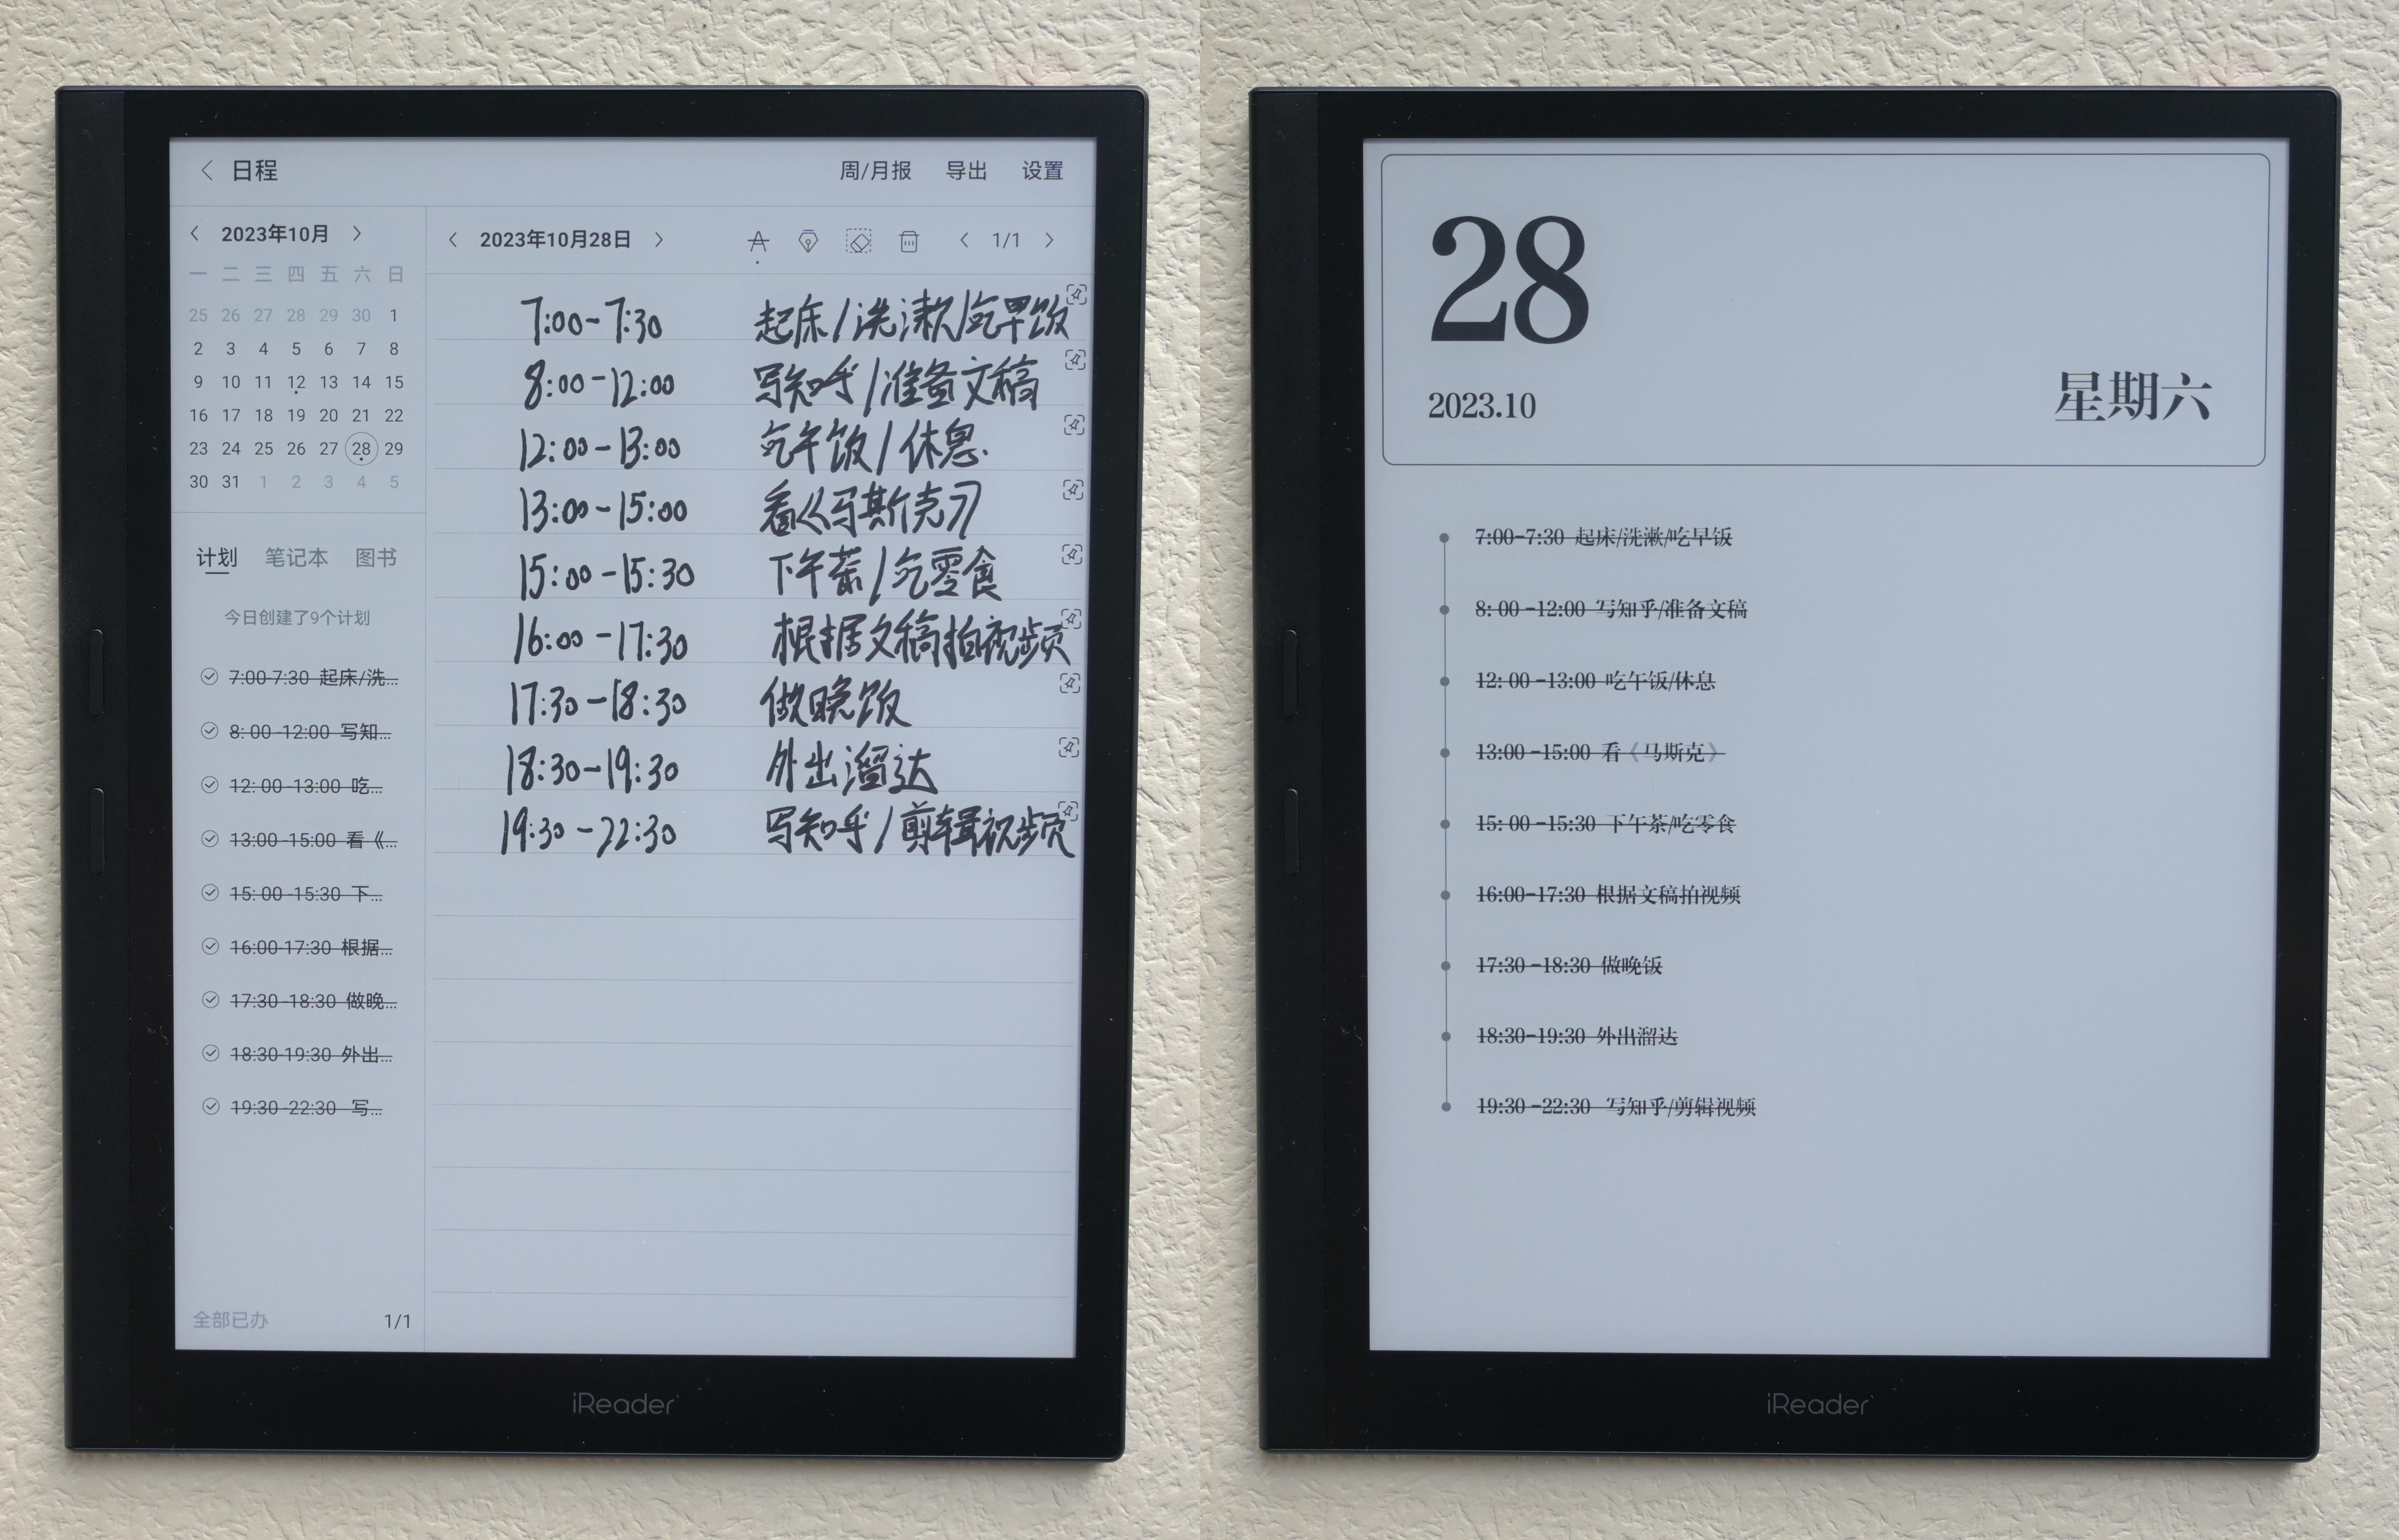 日程 周/月报 导出 设置
2023年10月
一 二 三 四 五 六 日
25 26 27 28 29 30 1
2 3 4 5 6 7 8
9 10 11 12 13 14 15
16 17 18 19 20 21 22
23 24 25 26 27 28 29
30 31 1 2 3 4 5
计划 笔记本 图书
今日创建了9个计划
7:00-7:30 起床/洗...
8: 00 -12:00 写知...
12: 00 -13:00 吃...
13:00 -15:00 看《...
15: 00 -15:30 下...
16:00-17:30 根据...
17:30 -18:30 做晚...
18:30-19:30 外出...
19:30 -22:30 写...
全部已办 1/1
2023年10月28日 1/1
7:00-7:30 起床/洗漱/吃早饭
8:00-12:00 写知乎/准备文稿
12:00-13:00 吃午饭/休息.
13:00-15:00 看《马斯克》
15:00-15:30 下午茶/吃零食
16:00-17:30 根据文稿拍视频
17:30-18:30 做晚饭
18:30-19:30 外出溜达
19:30-22:30 写知乎/剪辑视频
iReader
28
2023.10 星期六
7:00-7:30 起床/洗漱/吃早饭
8: 00 -12:00 写知乎/准备文稿
12: 00 -13:00 吃午饭/休息
13:00 -15:00 看《马斯克》
15: 00 -15:30 下午茶/吃零食
16:00-17:30 根据文稿拍视频
17:30 -18:30 做晚饭
18:30-19:30 外出溜达
19:30 -22:30 写知乎/剪辑视频
iReader